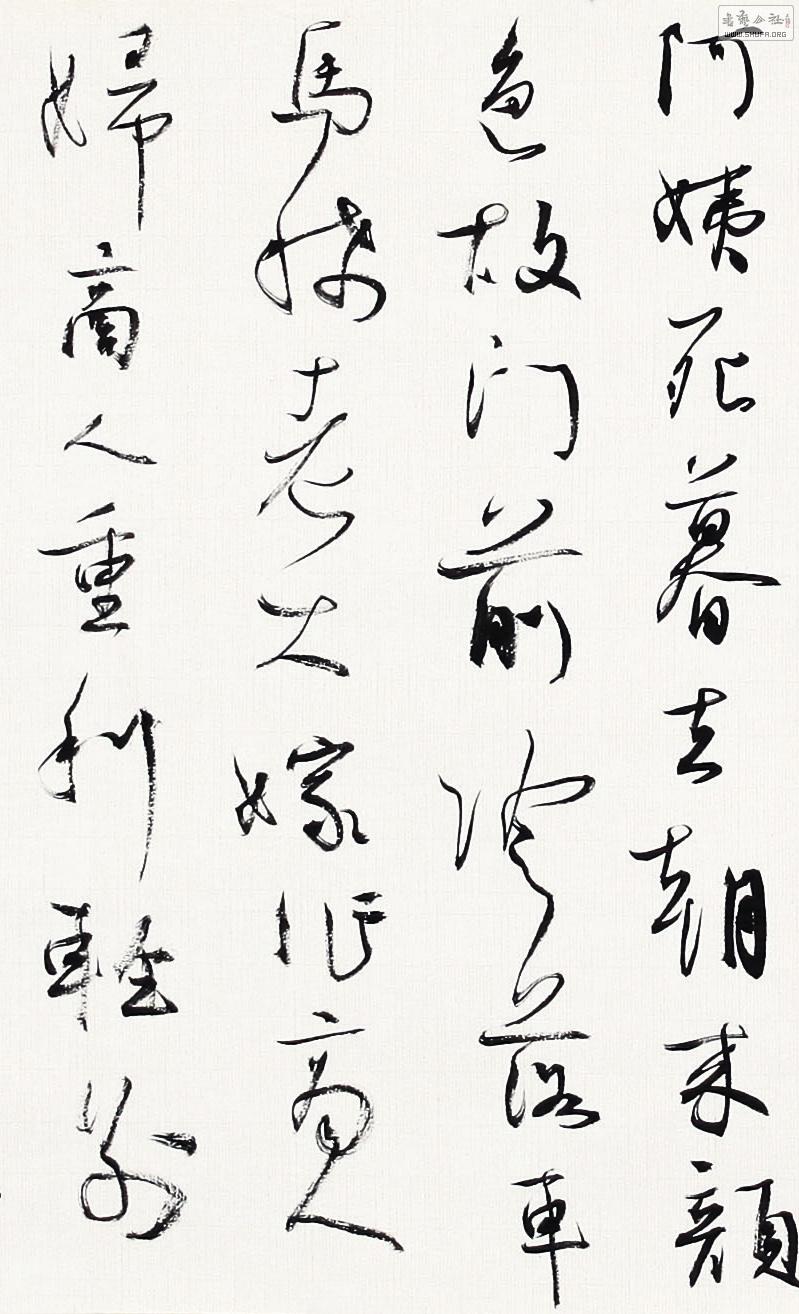 阿姨死暮去朝来顔
色故門前冷落車
馬稀老大嫁作商人
婦商人重利輕別
書藝公社
WWW.SHUFA.ORG